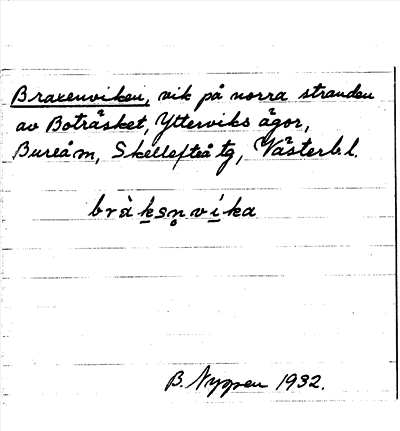 Braxenviken, vik på norra stranden
av Boträsket, Ytterviks ägor,
Bureå m, Skellefteå tg, Västerb l.
bràksn̥víka
B. Nyppen 1932.